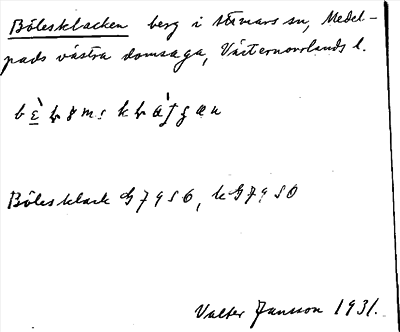 Bölesklacken berg i Stavars sn, Medel-
pads västra domsaga, Västernorrlands l.
Bölesklack G7950, kG7950
Valter Jansson 1931.